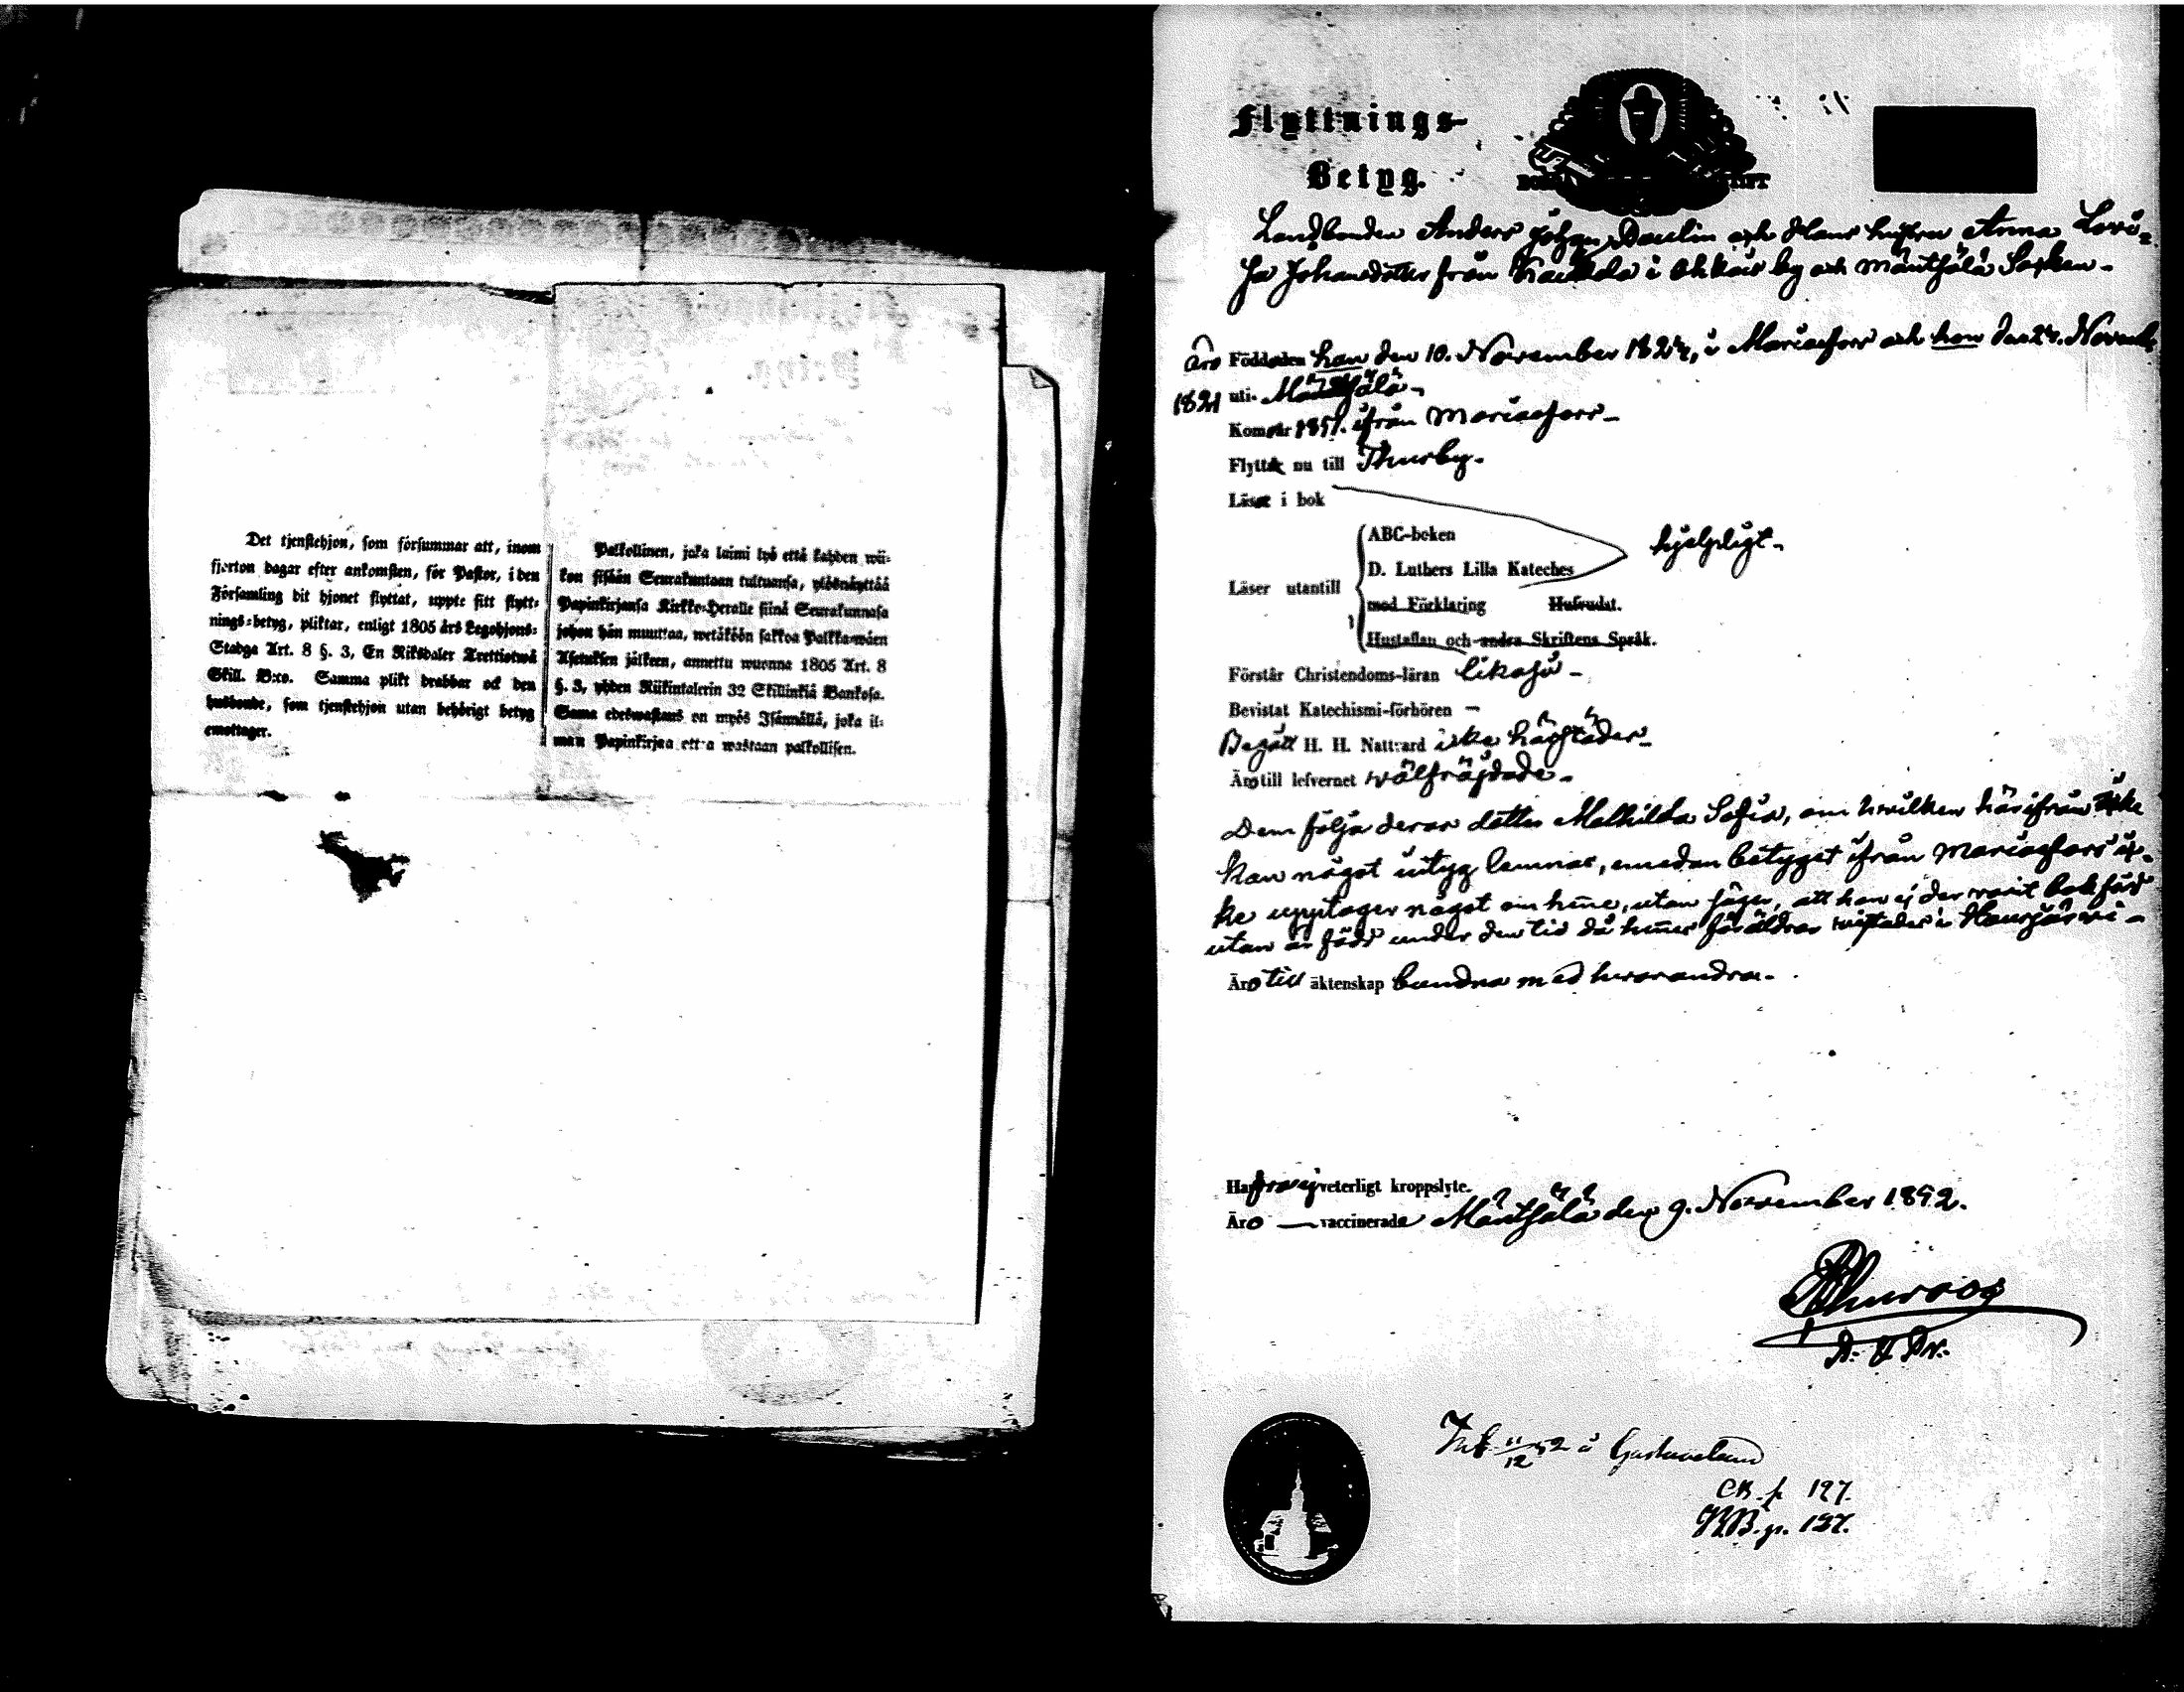 Det tjenstehjon, som försummar att, inom
fjorton dagar efter ankomsten, för Pastor, i den
Församling dit hjonet flyttat, uppte sitt flytt-
nings-betyg, pliktar, enligt 1805 års Legohjons-
Stadga Art. 8 §. 3, En Riksdaler Trettiotwå
Skill. B:co. Samma plikt drabbar ock den
husbonde, som tjenstehjon utan behörigt betyg
emottager.
Palkollinen, joka laimi lyö että kahden wii-
kon sisään Seurakuntaan tultuansa, ylösnäyttää
Papinkirjansa Kirkko-Herralle siinä Seurakunnasa
johon hän muuttaa, wetäköön sakkoa Palkka-wäen
Asetuksen jälkeen, annettu wuonna 1805 Art. 8
§. 3, yhden Riikintalerin 32 Skillinkiä Bankosa.
Sama edeswastaus on myös Isännällä, joka il-
man Papinkirjaa ottaa wastaan palkollisen.
Flyttnings-
Betyg.
Landbonden Anders Johan Daulin och Hans hustru Anna Lovi-
sa Johansdotter från i Ohkois by och Mäntsälä Socken-
äro Födde den han den 10. November 1824, i Mariaefors och hon den 24. Novemb.
1821 uti Mäntsälä-
Kom år 1851. ifrån Mariaefors-
Flytta nu till Thusby.
Läser i bok
ABC-boken
D. Luthers Lilla Kateches
hjelpligt-
Läser utantill
med Förklaring Husvudst.
Hustaflan och andra Skriftens Språk.
Förstår Christendoms-läran likaså-
Bevistat Katechismi-förhören -
Begått H. H. Nattvard icke härstädes-
Äro till lefvernet wälfräjdade-
Dem följa deras dotter Mathilda Sofia, om hwilken härifrån icke
kan något intyg lemnas, emedan betyget ifrån Mariaefors ic-
ke upptager något om henne, utan säger, att hon ej der warit bokförd
utan är född under den tid då hennes föräldrar wistades i Hausjärwi-
Äro till äktenskap bundna med hwarandra-
Hafwa ej veterligt kroppslyte.
Äro - vaccinerade Mäntsälä den 9. November 1852.
Inf 11/12 52 à Gustavelund
CB. p 127.
KB. p. 157.